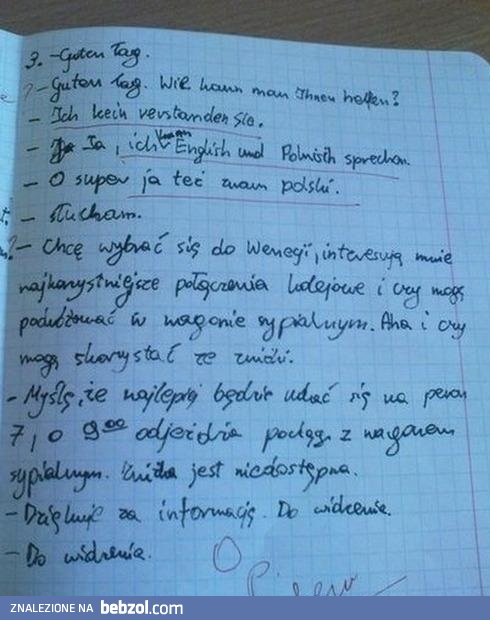 3. - Guten Tag.
? - Guten Tag. Wie kann man Ihnen helfen?
- Ich kein verstanden Sie.
- Ja, ich kann English und Polnisch sprechen.
- O super ja też znam polski.
- Słucham.
- Chcę wybrać się do Wenecji, interesują mnie
najkorzystniejsze połączenia kolejowe i czy mogę
podróżować w wagonie sypialnym. Aha i czy
mogę skorzystać ze zniżki.
- Myślę, że najlepiej będzie udać się na peron
7, o 900 odjeżdża pociąg z wagonem
sypialnym. Zniżka jest niedostępna.
- Dziękuję za informację. Do widzenia.
- Do widzenia.
O
ZNALEZIONE NA bebzol.com